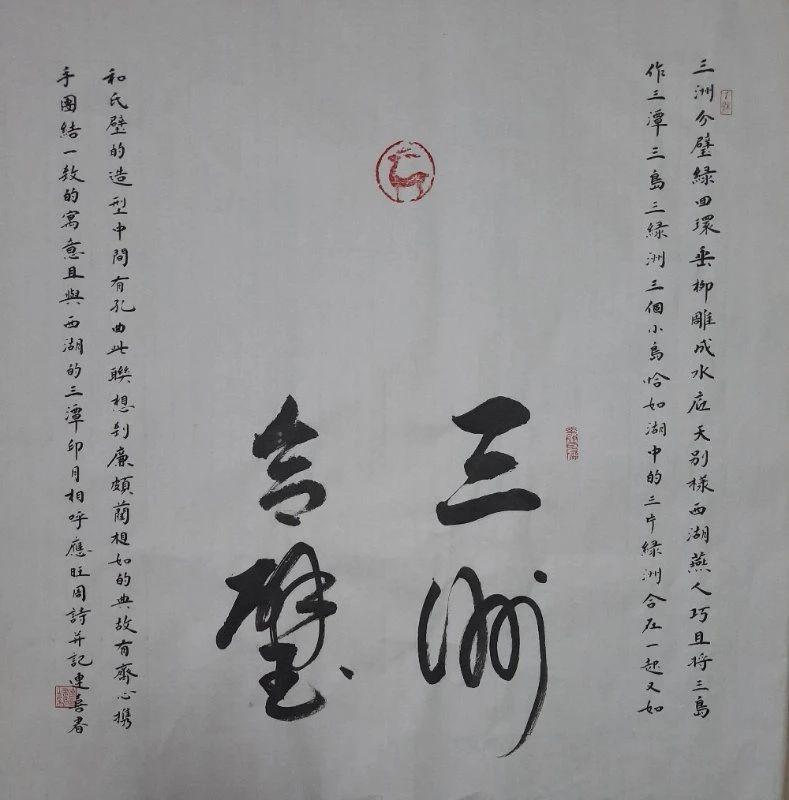 三洲分璧綠回環垂柳雕成水底天别樣西湖燕人巧且将三島
作三潭三島三緑洲三個小島恰如湖中的三片緑洲合在一起又如
三洲
合璧
和氏璧的造型中間有孔由此聯想到廉頗藺相如的典故有齊心携
手團結一致的寓意且與西湖的三潭印月相呼應旺周詩并記連喜書